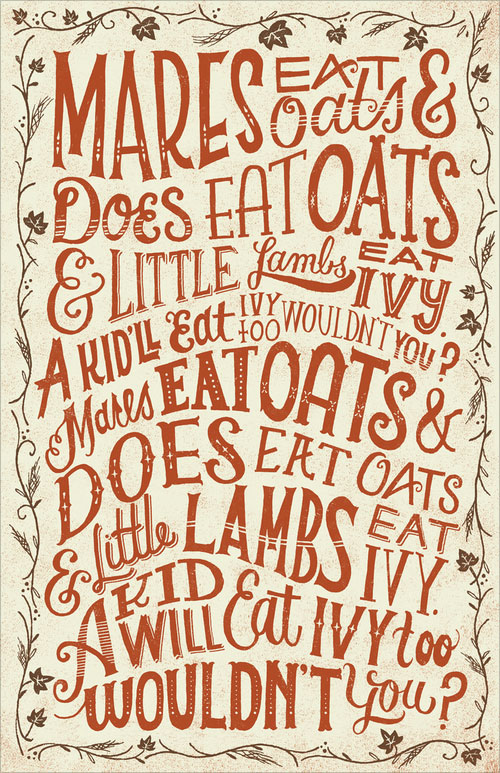 MARES EAT Oats &
DOES EAT OATS
& LITTLE Lambs EAT IVY.
A KID'LL Eat IVY TOO WOULDN'T YOU?
Mares EAT OATS &
DOES EAT OATS
& Little LAMBS EAT IVY.
A KID WILL Eat IVY too
WOULDN'T You?